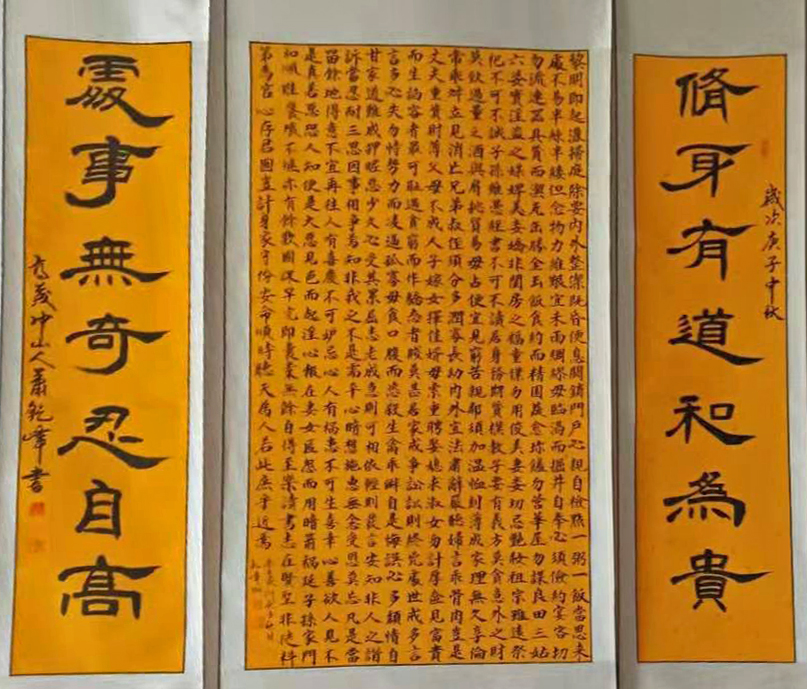 脩身有道和為貴
歲次庚子中秋
黎明即起灑掃庭除要內外整潔既昏便息關鎖門戶必親自檢點一粥一飯當思來
處不易半絲半縷恒念物力維艱宜未雨綢繆毋臨渴而掘井自奉必須儉約宴客切
勿流連器具質而潔瓦缶勝金玉飲食約而精園蔬愈珍饈勿營華屋勿謀良田三姑
六婆實淫盜之媒婢美妾嬌非閨房之福童僕勿用俊美妻妾切忌艷妝祖宗雖遠祭
祀不可不誠子孫雖愚經書不可不讀居身務期質樸教子要有義方莫貪意外之財
莫飲過量之酒與肩挑貿易毋占便宜見窮苦親鄰須加溫恤刻薄成家理無久享倫
常乖舛立見消亡兄弟叔侄須分多潤寡長幼內外宜法肅辭嚴聽婦言乖骨肉豈是
丈夫重貲財薄父母不成人子嫁女擇佳婿毋索重聘娶媳求淑女勿計厚奩見富貴
而生諂容者最可恥遇貧窮而作驕態者賤莫甚居家戒爭訟訟則終凶處世戒多言
言多必失勿恃勢力而凌逼孤寡毋貪口腹而恣殺生禽乖僻自是悔誤必多頹惰自
甘家道難成狎暱惡少久必受其累屈志老成急則可相依輕聽發言安知非人之譖
訴當忍耐三思因事相爭焉知非我之不是需平心暗想施惠無念受恩莫忘凡是當
留餘地得意不宜再往人有喜慶不可妒忌心人有禍患不可生喜幸心善欲人見不
是真善惡恐人知便是大惡見色而起淫心報在妻女匿怨而用暗箭禍延子孫家門
和順雖饔飧不繼亦有餘歡國課早完即囊橐無餘自得至樂讀書志在聖賢非徒科
第為官心存君國豈計身家守份安命順時聽天為人若此庶乎近焉
處事無奇忍自高
冲山人蕭乾峰書